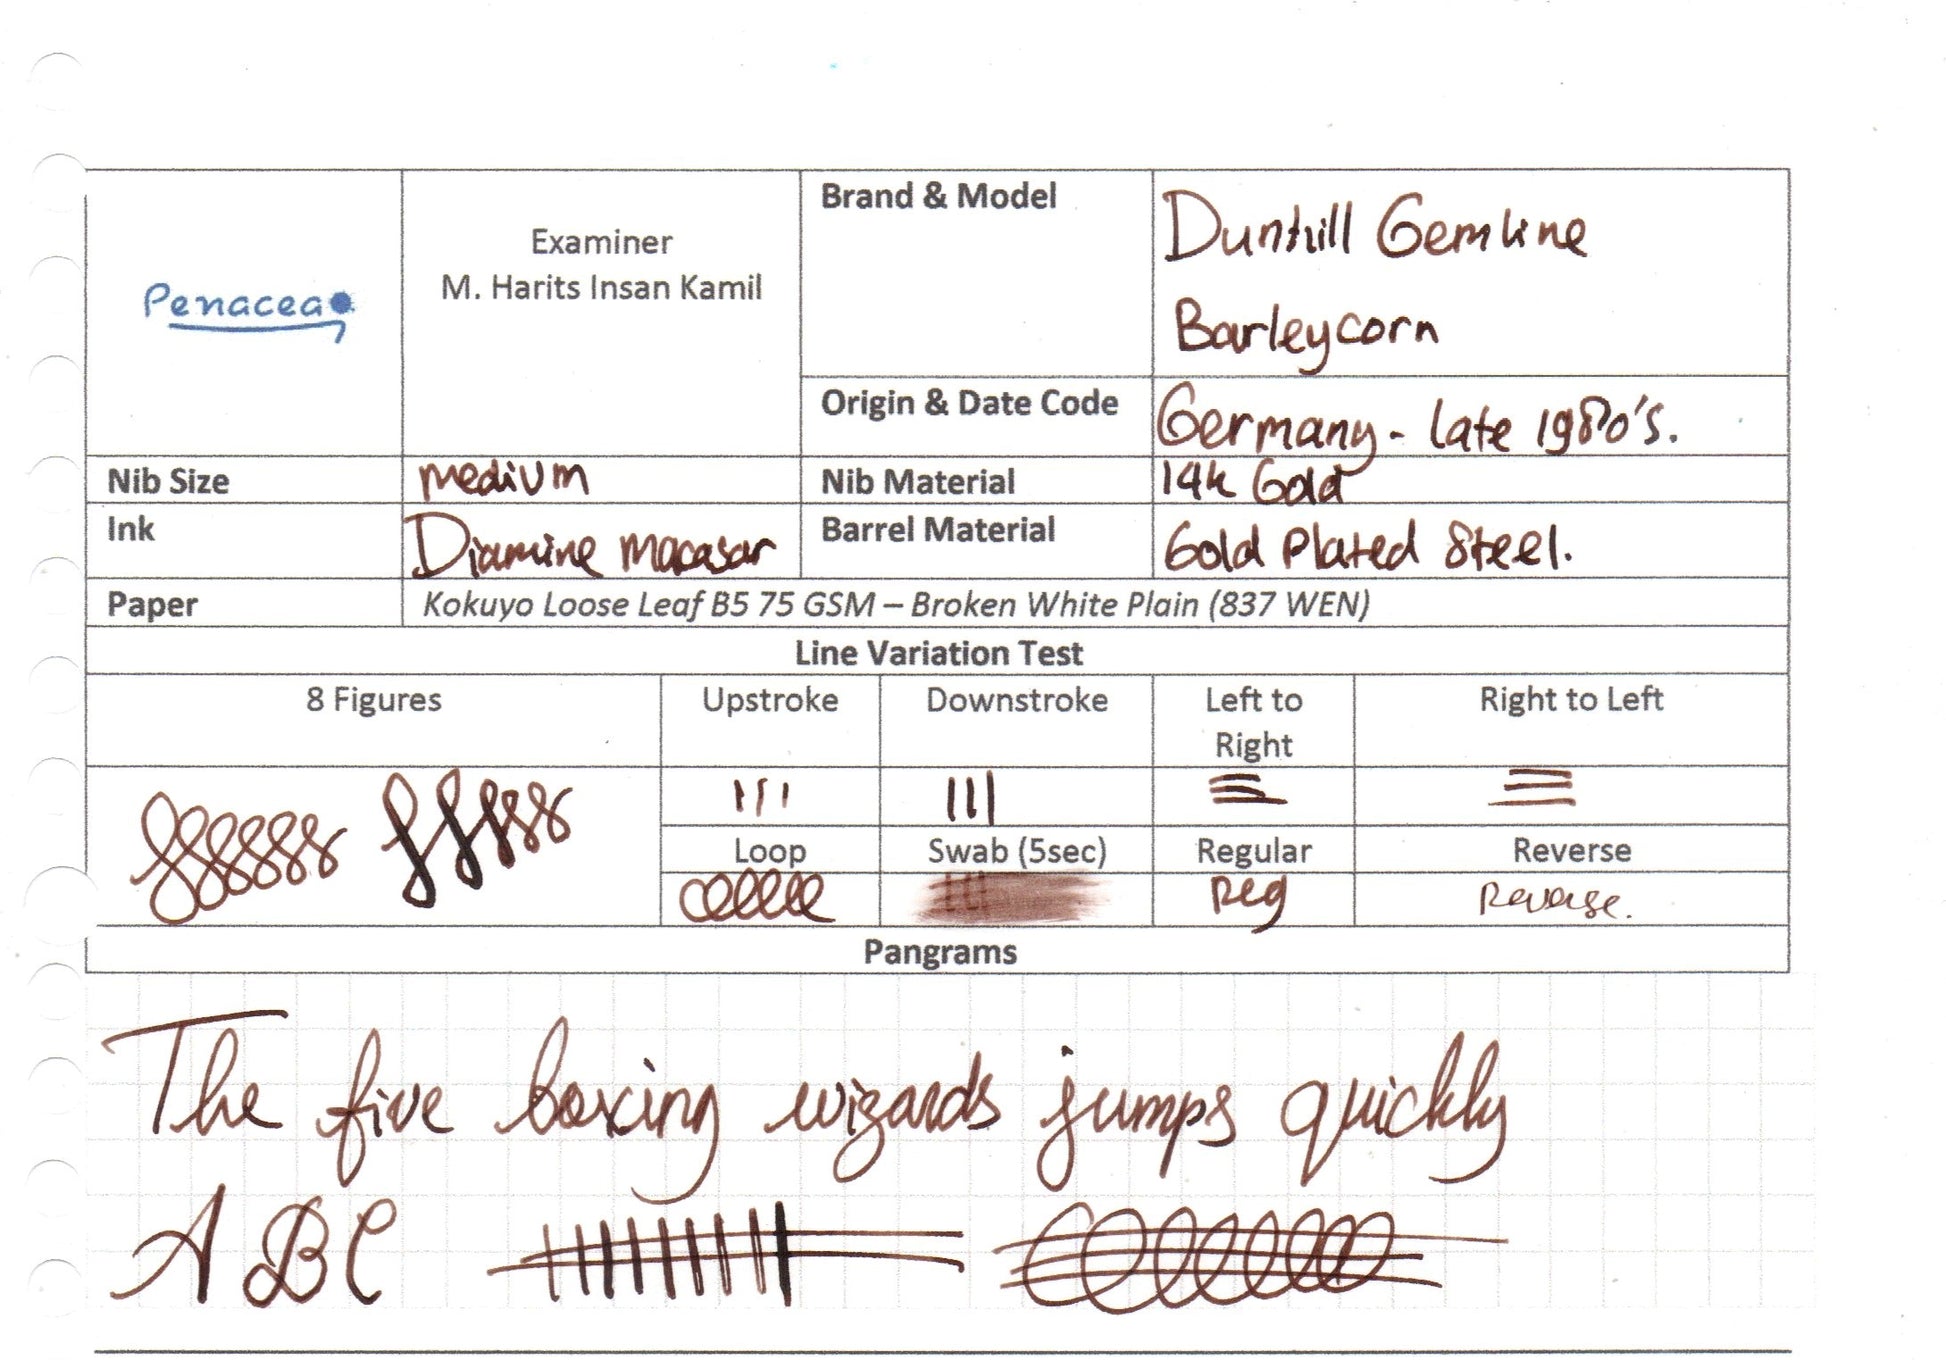 Penacea
Examiner
M. Harits Insan Kamil
Brand & Model
Dunhill Gemline
Barleycorn
Origin & Date Code
Germany - late 1980's.
Nib Size
medium
Nib Material
14k Gold
Ink
Diamine macasar
Barrel Material
Gold Plated Steel.
Paper
Kokuyo Loose Leaf B5 75 GSM – Broken White Plain (837 WEN)
Line Variation Test
8 Figures
Upstroke
Downstroke
Left to
Right
Right to Left
Loop
Swab (5sec)
Regular
Reverse
Reg
Reverse.
Pangrams
The five boxing wizards jumps quickly
A B C